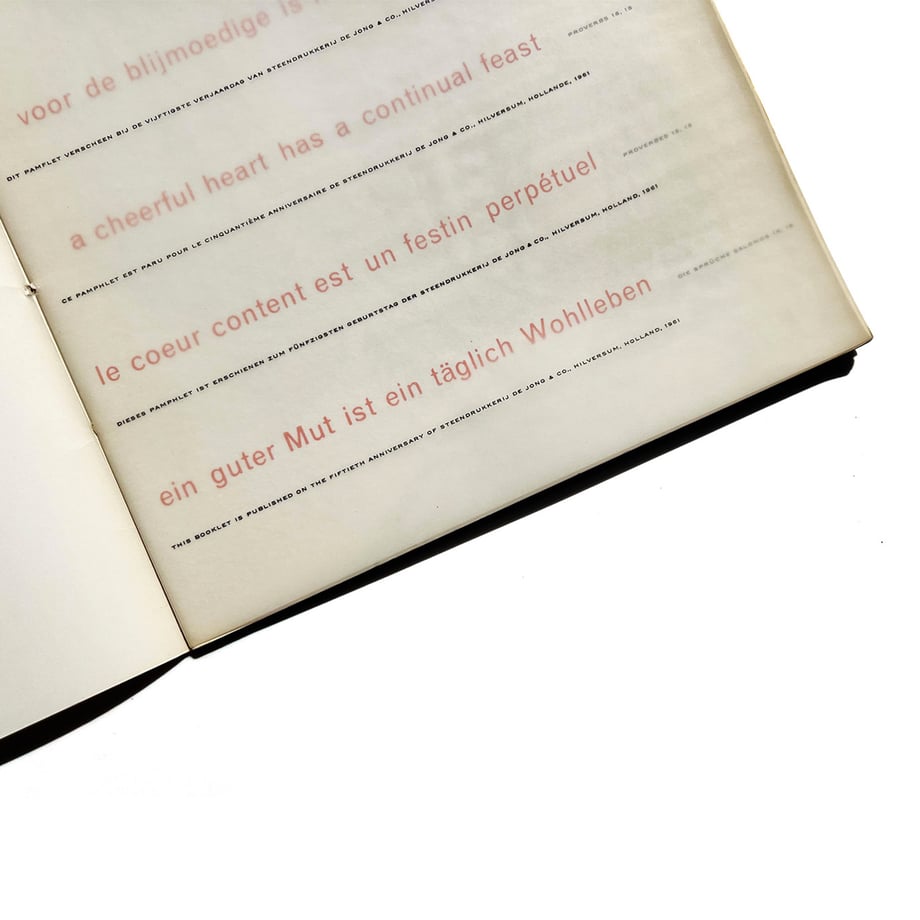 voor de blijmoedige is
DIT PAMFLET VERSCHEEN BIJ DE VIJFTIGSTE VERJAARDAG VAN STEENDRUKKERIJ DE JONG & CO.,
PROVERBS 15, 15
a cheerful heart has a continual feast
CE PAMPHLET EST PARU POUR LE CINQUANTIÈME ANNIVERSAIRE DE STEENDRUKKERIJ DE JONG & CO., HILVERSUM, HOLLANDE, 1961
PROVERBES 15, 15
le coeur content est un festin perpétuel
DIESES PAMPHLET IST ERSCHIENEN ZUM FÜNFZIGSTEN GEBURTSTAG DER STEENDRUKKERIJ DE JONG & CO., HILVERSUM, HOLLAND, 1961
DIE SPRÜCHE SALOMOS 15, 15
ein guter Mut ist ein täglich Wohlleben
THIS BOOKLET IS PUBLISHED ON THE FIFTIETH ANNIVERSARY OF STEENDRUKKERIJ DE JONG & CO., HILVERSUM, HOLLAND, 1961